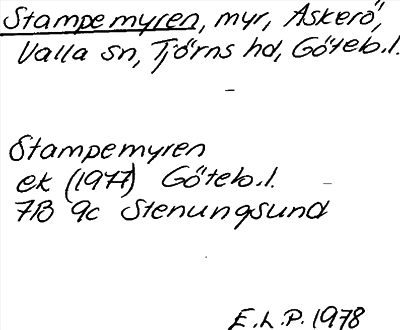 Stampemyren, myr, Askerö,
Valla sn, Tjörns hd, Göteb.l.
Stampemyren
ek (1977) Göteb.l.
7B 9c Stenungsund
E.L.P. 1978